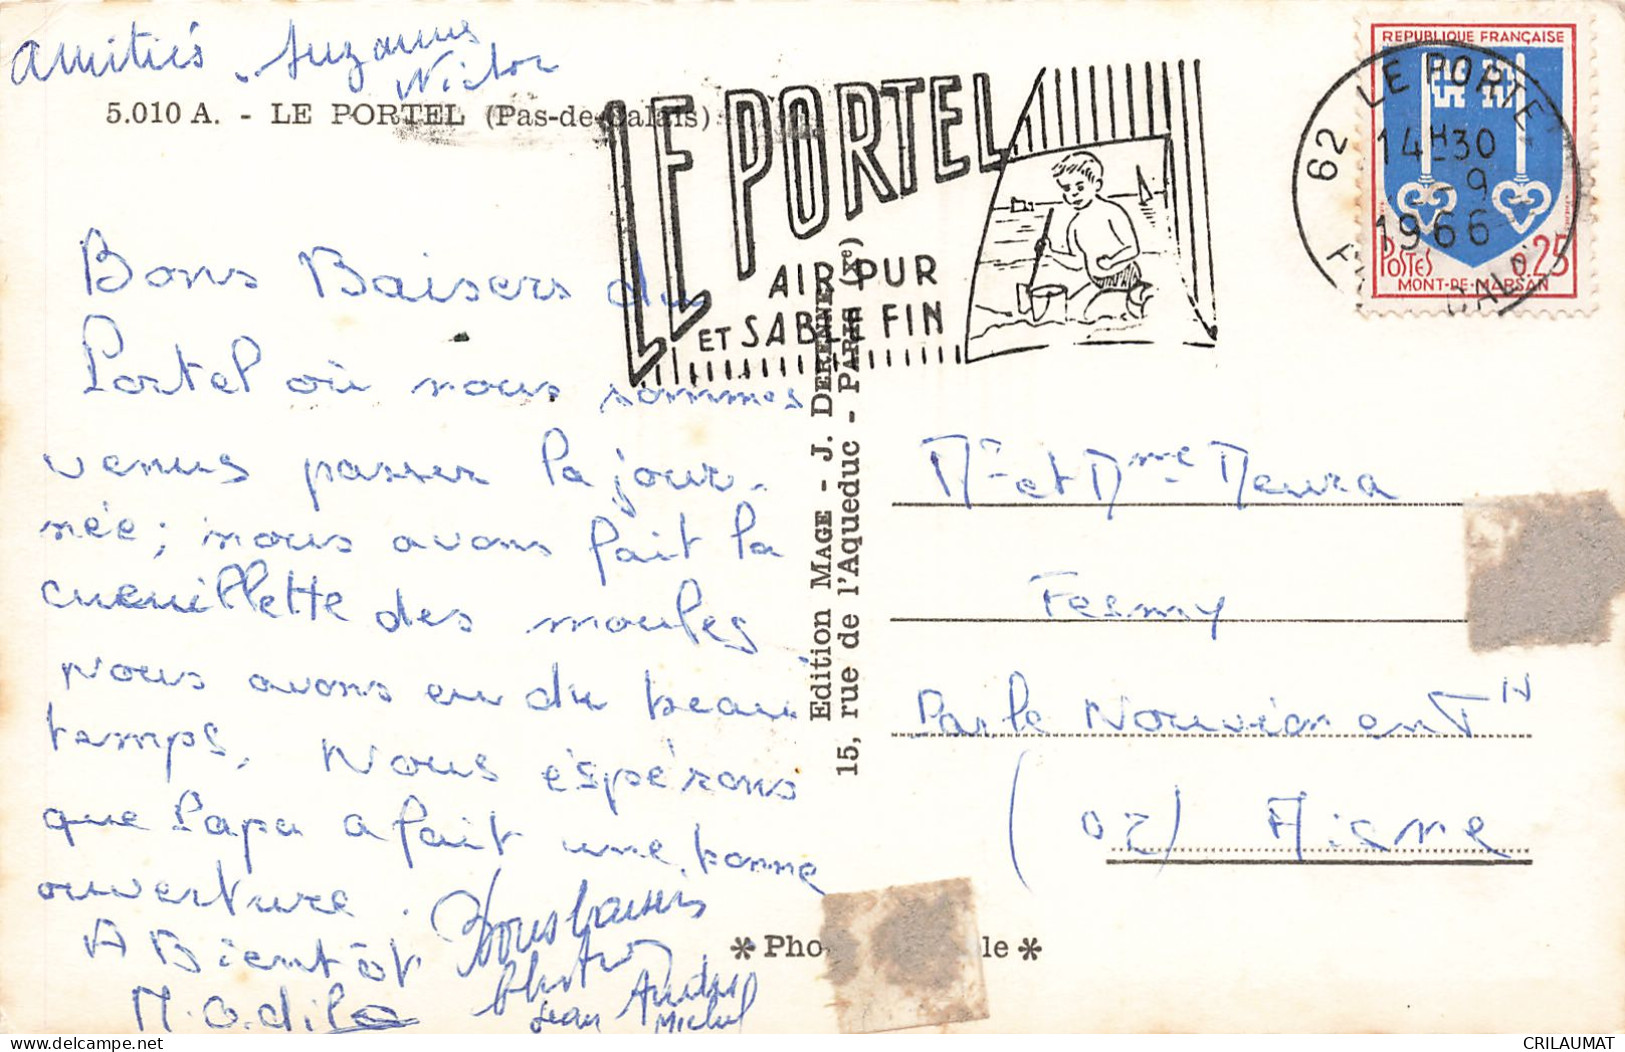 Amitiés Suzanne
Victor
5.010 A. - LE PORTEL (Pas-de-Calais)
LE PORTEL
AIR PUR
ET SABLE FIN
REPUBLIQUE FRANÇAISE
POSTES 0,25
MONT-DE-MARSAN
62 LE PORTEL
14H30
-9
1966
Bons Baisers du
Portel où nous sommes
venus passer la jour-
née; nous avons fait la
cueuillette des moules
Nous avons eu du beau
temps. Nous éspérons
que Papa a fait une bonne
ouverture.
A Bientôt
M. Odile
Bons baisers
Jean
Michel
Edition MAGE - J. DERENNE
15, rue de l'Aqueduc - PARIS (Xe)
Mr et Mme Meura
Fesmy
Par le Nouvion en TH
(02) Aisne
* Pho le *
CRILAUMAT